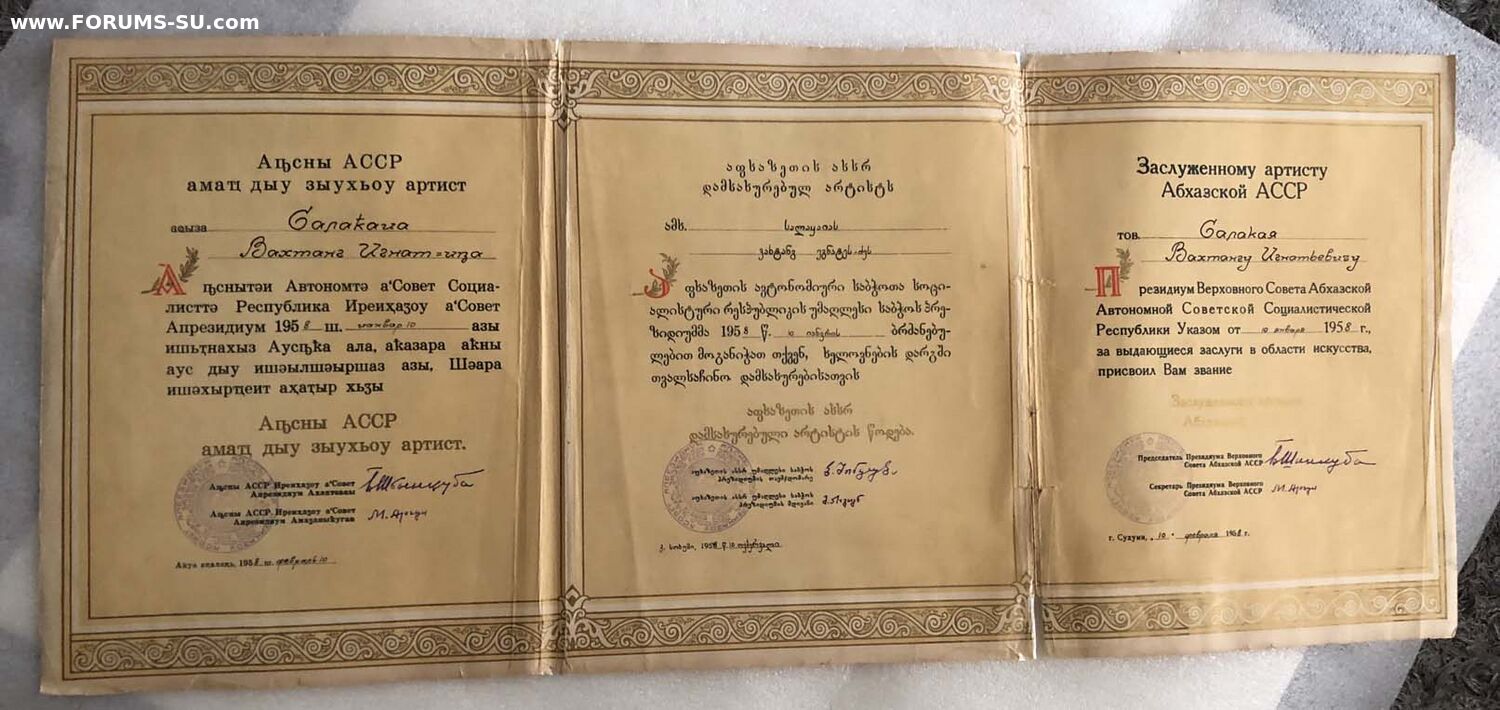 www.FORUMS-SU.com
Аҧсны АССР
аматҵ дыу зыухьоу артист
аҩыза Салаҟаиа
Вахтанг Игнат-иҧа
Аҧснытәи Автономтә а‘Совет Социа-
листтә Республика Иреиҳаӡоу а‘Совет
Апрезидиум 1958 ш. ианвар 10 азы
ишьҭнахыз Аусҧҟа ала, аҟазара аҟны
аус дыу ишәылшәыршаз азы, Шәара
ишәхырҵеит аҳаҭыр хьӡы
Аҧсны АССР
аматҵ дыу зыухьоу артист.
Аҧсны АССР Иреиҳаӡоу а‘Совет
Апрезидиум Ахантәаҩы
Аҧсны АССР Иреиҳаӡоу а‘Совет
Апрезидиум Амаӡаныҟугаҩ
Аҟуа ақалақь, 1958 ш. февраль 10
აფხაზეთის ასსრ
დამსახურებულ არტისტს
ამხ. სალაყაიას
ვახტანგ ეგნატეს-ძეს
აფხაზეთის ავტონომიური საბჭოთა სოცი-
ალისტური რესპუბლიკის უმაღლესი საბჭოს პრე-
ზიდიუმმა 1958 წ. 10 იანვრის ბრძანებუ-
ლებით მოგანიჭათ თქვენ, ხელოვნების დარგში
თვალსაჩინო დამსახურებისათვის
აფხაზეთის ასსრ
დამსახურებული არტისტის წოდება.
აფხაზეთის ასსრ უმაღლესი საბჭოს
პრეზიდიუმის თავმჯდომარე
აფხაზეთის ასსრ უმაღლესი საბჭოს
პრეზიდიუმის მდივანი
ქ. სოხუმი, 1958 წ. 10 თებერვალი
Заслуженному артисту
Абхазской АССР
тов. Салакая
Вахтангу Игнатьевичу
Президиум Верховного Совета Абхазской
Автономной Советской Социалистической
Республики Указом от 10 января 1958 г.,
за выдающиеся заслуги в области искусства,
присвоил Вам звание
Председатель Президиума Верховного
Совета Абхазской АССР
Секретарь Президиума Верховного
Совета Абхазской АССР
г. Сухуми, „10“ февраля 1958 г.